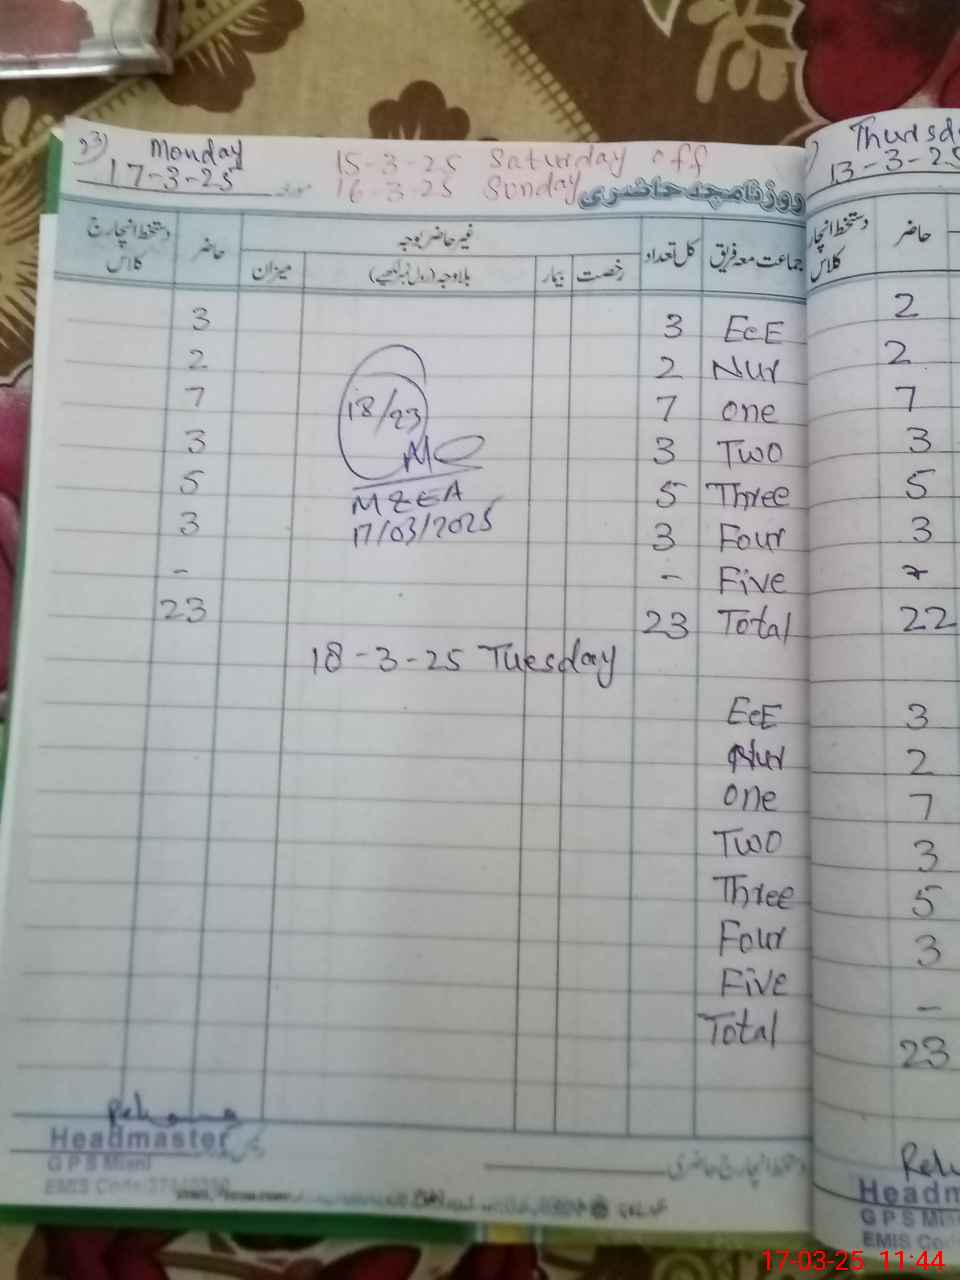 23) Monday
17-3-25
15-3-25 Saturday off
16-3-25 Sunday
روزنامچہ حاضری
جماعت معہ فریق کل تعداد غیر حاضر بوجہ حاضر دستخط انچارج کلاس
رخصت بیمار بلاوجہ میزان
EcE 3 3
Nur 2 2
one 7 7
Two 3 3
Three 5 5
Four 3 3
Five - -
Total 23 23
18/23
MZEA
17/03/2025
18-3-25 Tuesday
EcE
Nur
one
Two
Three
Four
Five
Total
Headmaster
GPS Miani
EMIS Code:
دستخط انچارج حاضری
Thursd
13-3-25
حاضر
دستخط انچارج
کلاس
2
2
7
3
5
3
22
3
2
7
3
5
3
-
23
Headm
GPS Mia
EMIS Cod
17-03-25 11:44